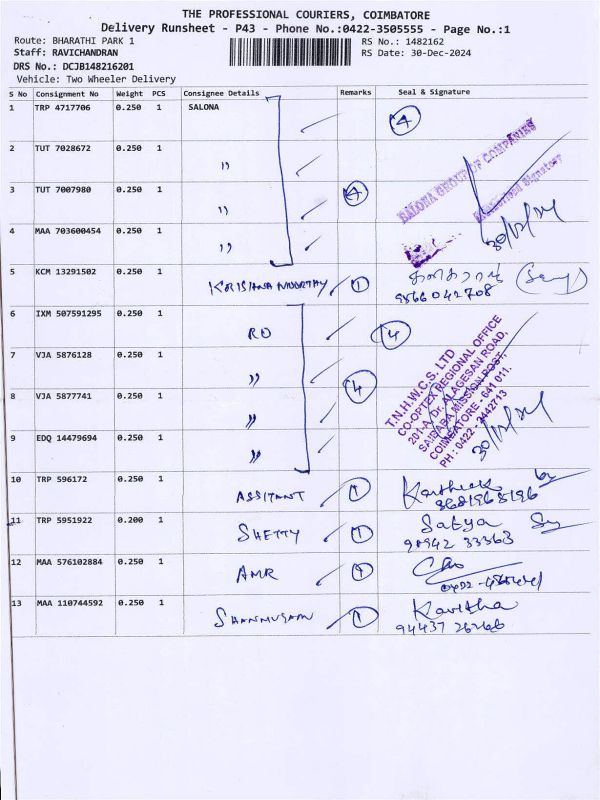 THE PROFESSIONAL COURIERS, COIMBATORE
Delivery Runsheet - P43 - Phone No.:0422-3505555 - Page No.:1
Route: BHARATHI PARK 1 RS No.: 1482162
Staff: RAVICHANDRAN RS Date: 30-Dec-2024
DRS No.: DCJB148216201
Vehicle: Two Wheeler Delivery
S No Consignment No Weight PCS Consignee Details Remarks Seal & Signature
1 TRP 4717706 0.250 1 SALONA 4
2 TUT 7028672 0.250 1 ,,
SALONA GROUP OF COMPANIES
Authorised Signatory
3 TUT 7007980 0.250 1 ,, 4
4 MAA 703600454 0.250 1 ,, 30/12/24
5 KCM 13291502 0.250 1 KORISHANA MOORTHAY 1
9866042708
6 IXM 507591295 0.250 1 RO 4
7 VJA 5876128 0.250 1 ,,
T.N.H.W.C.S. LTD
CO-OPTEX REGIONAL OFFICE
201-A, Dr. ALAGESAN ROAD,
SAIBABA MISSION POST,
COIMBATORE - 641 011.
PH : 0422 - 2442713
8 VJA 5877741 0.250 1 ,, 4
9 EDQ 14479694 0.250 1 ,, 30/12/24
10 TRP 596172 0.250 1 ASSITANT 1 Kartheek
11 TRP 5951922 0.200 1 SHETTY 1 Satya
90942 33363
12 MAA 576102884 0.250 1 AMR 1
13 MAA 110744592 0.250 1 SHANMUGAM 1 Kavitha